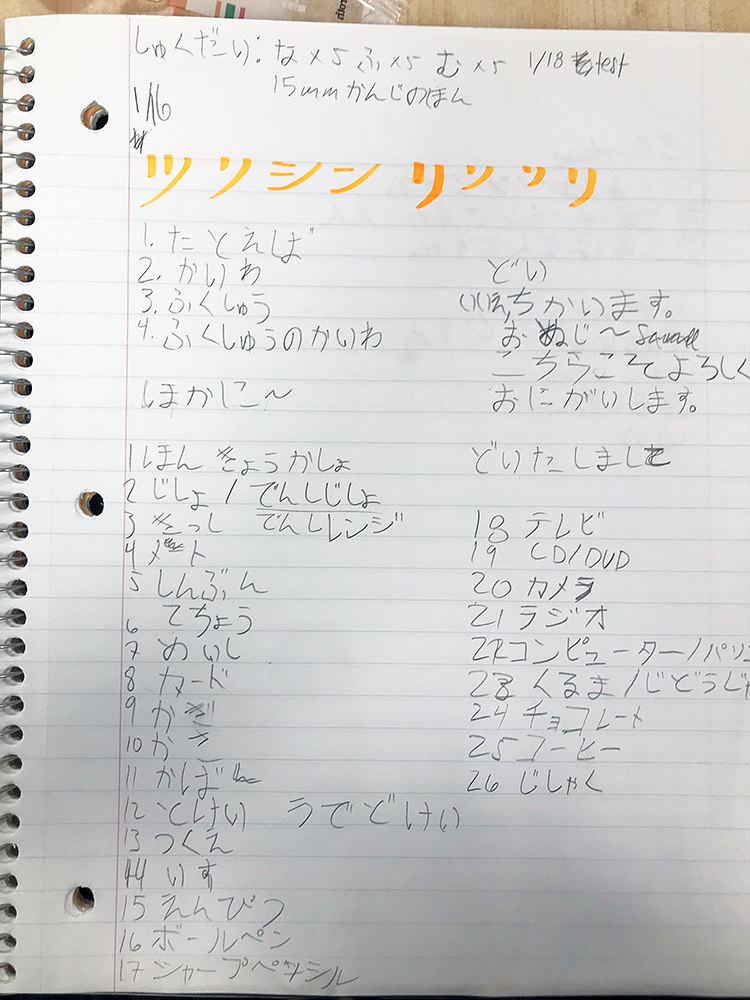 しゅくだい: な×5 ふ×5 む×5 1/18 test
15mm かんじのほん
1/16
ツ ソ シ ン リ ソ ッ リ
1. たとえば
2. かいわ
3. ふくしゅう
4. ふくしゅうのかいわ
ほかに〜
どい
いいえ, ちかいます。
お じ〜
こちらこそよろしく
おにがいします。
1 ほん きょうかしょ
どいたしまして
2 じしょ / でんしじしょ
3 ざっし でんしレンジ
4
5 しんぶん
6 てちょう
7 めいし
8 カード
9 かぎ
10 かさ
11 かばん
12 とけい うでどけい
13 つくえ
14 いす
15 えんぴつ
16 ボールペン
17 シャープペンシル
18 テレビ
19 CD/DVD
20 カメラ
21 ラジオ
22 コンピューター/パソコ
23 くるま/じどうじゃ
24 チョコレート
25 コーヒー
26 じしゃく